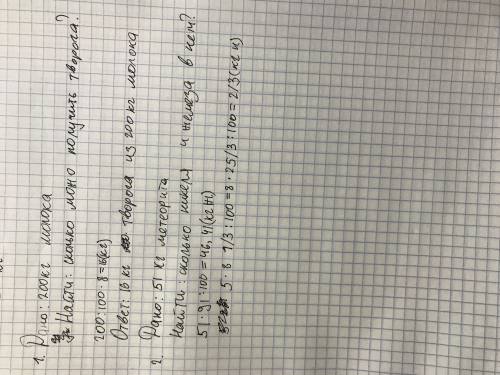 1. Дано: 200кг молока
Найти: сколько можо получить творога?
200:100·8=16(кг)
Ответ: 16 кг творога из 200 кг молока
2. Дано: 51 кг метеорита
Найти: сколько никеля и железа в нем?
51·91:100=46,41(кг ж)
5·8 1/3:100=8·25/3:100=2/3(кг н)